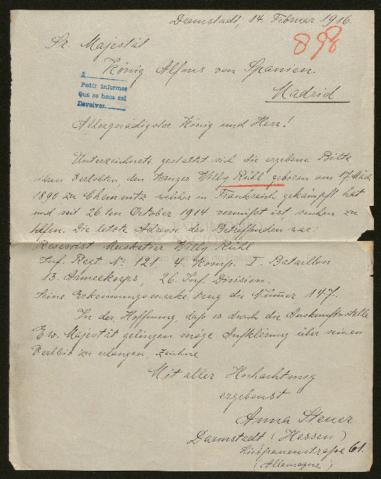 Darmstadt, 14. Februar 1916.
898
Sr. Majestät
König Alfons von Spanien
Madrid
Pedir informes
Que se haga así
Devolver.
Allergnädigster König und Herr!
Unterzeichnete gestattet sich die ergebene Bitte
ihren Verlobten, den Willy Rühl geboren am 17.
1890 zu Chemnitz welcher in Frankreich gekämpft hat
und seit 26ten October 1914 vermißt ist suchen zu
. Die letzte Adresse des Betreffenden war:
Reservist Musketier Willy Rühl
Inf. Regt. No. 121. 4. Komp. I. Bataillon
13. Armeekorps, 26. Inf. Division.
Seine Erkennungsmarke trug die Nummer 147.
In der Hoffnung, daß es durch die Auskunftsstelle
Ew. Majestät gelingen möge Aufklärung über seinen
Verbleib zu erlangen, zeichne
Mit aller Hochachtung
ergebenst
Anna Steuer
Darmstadt (Hessen)
61.
(Allemagne)